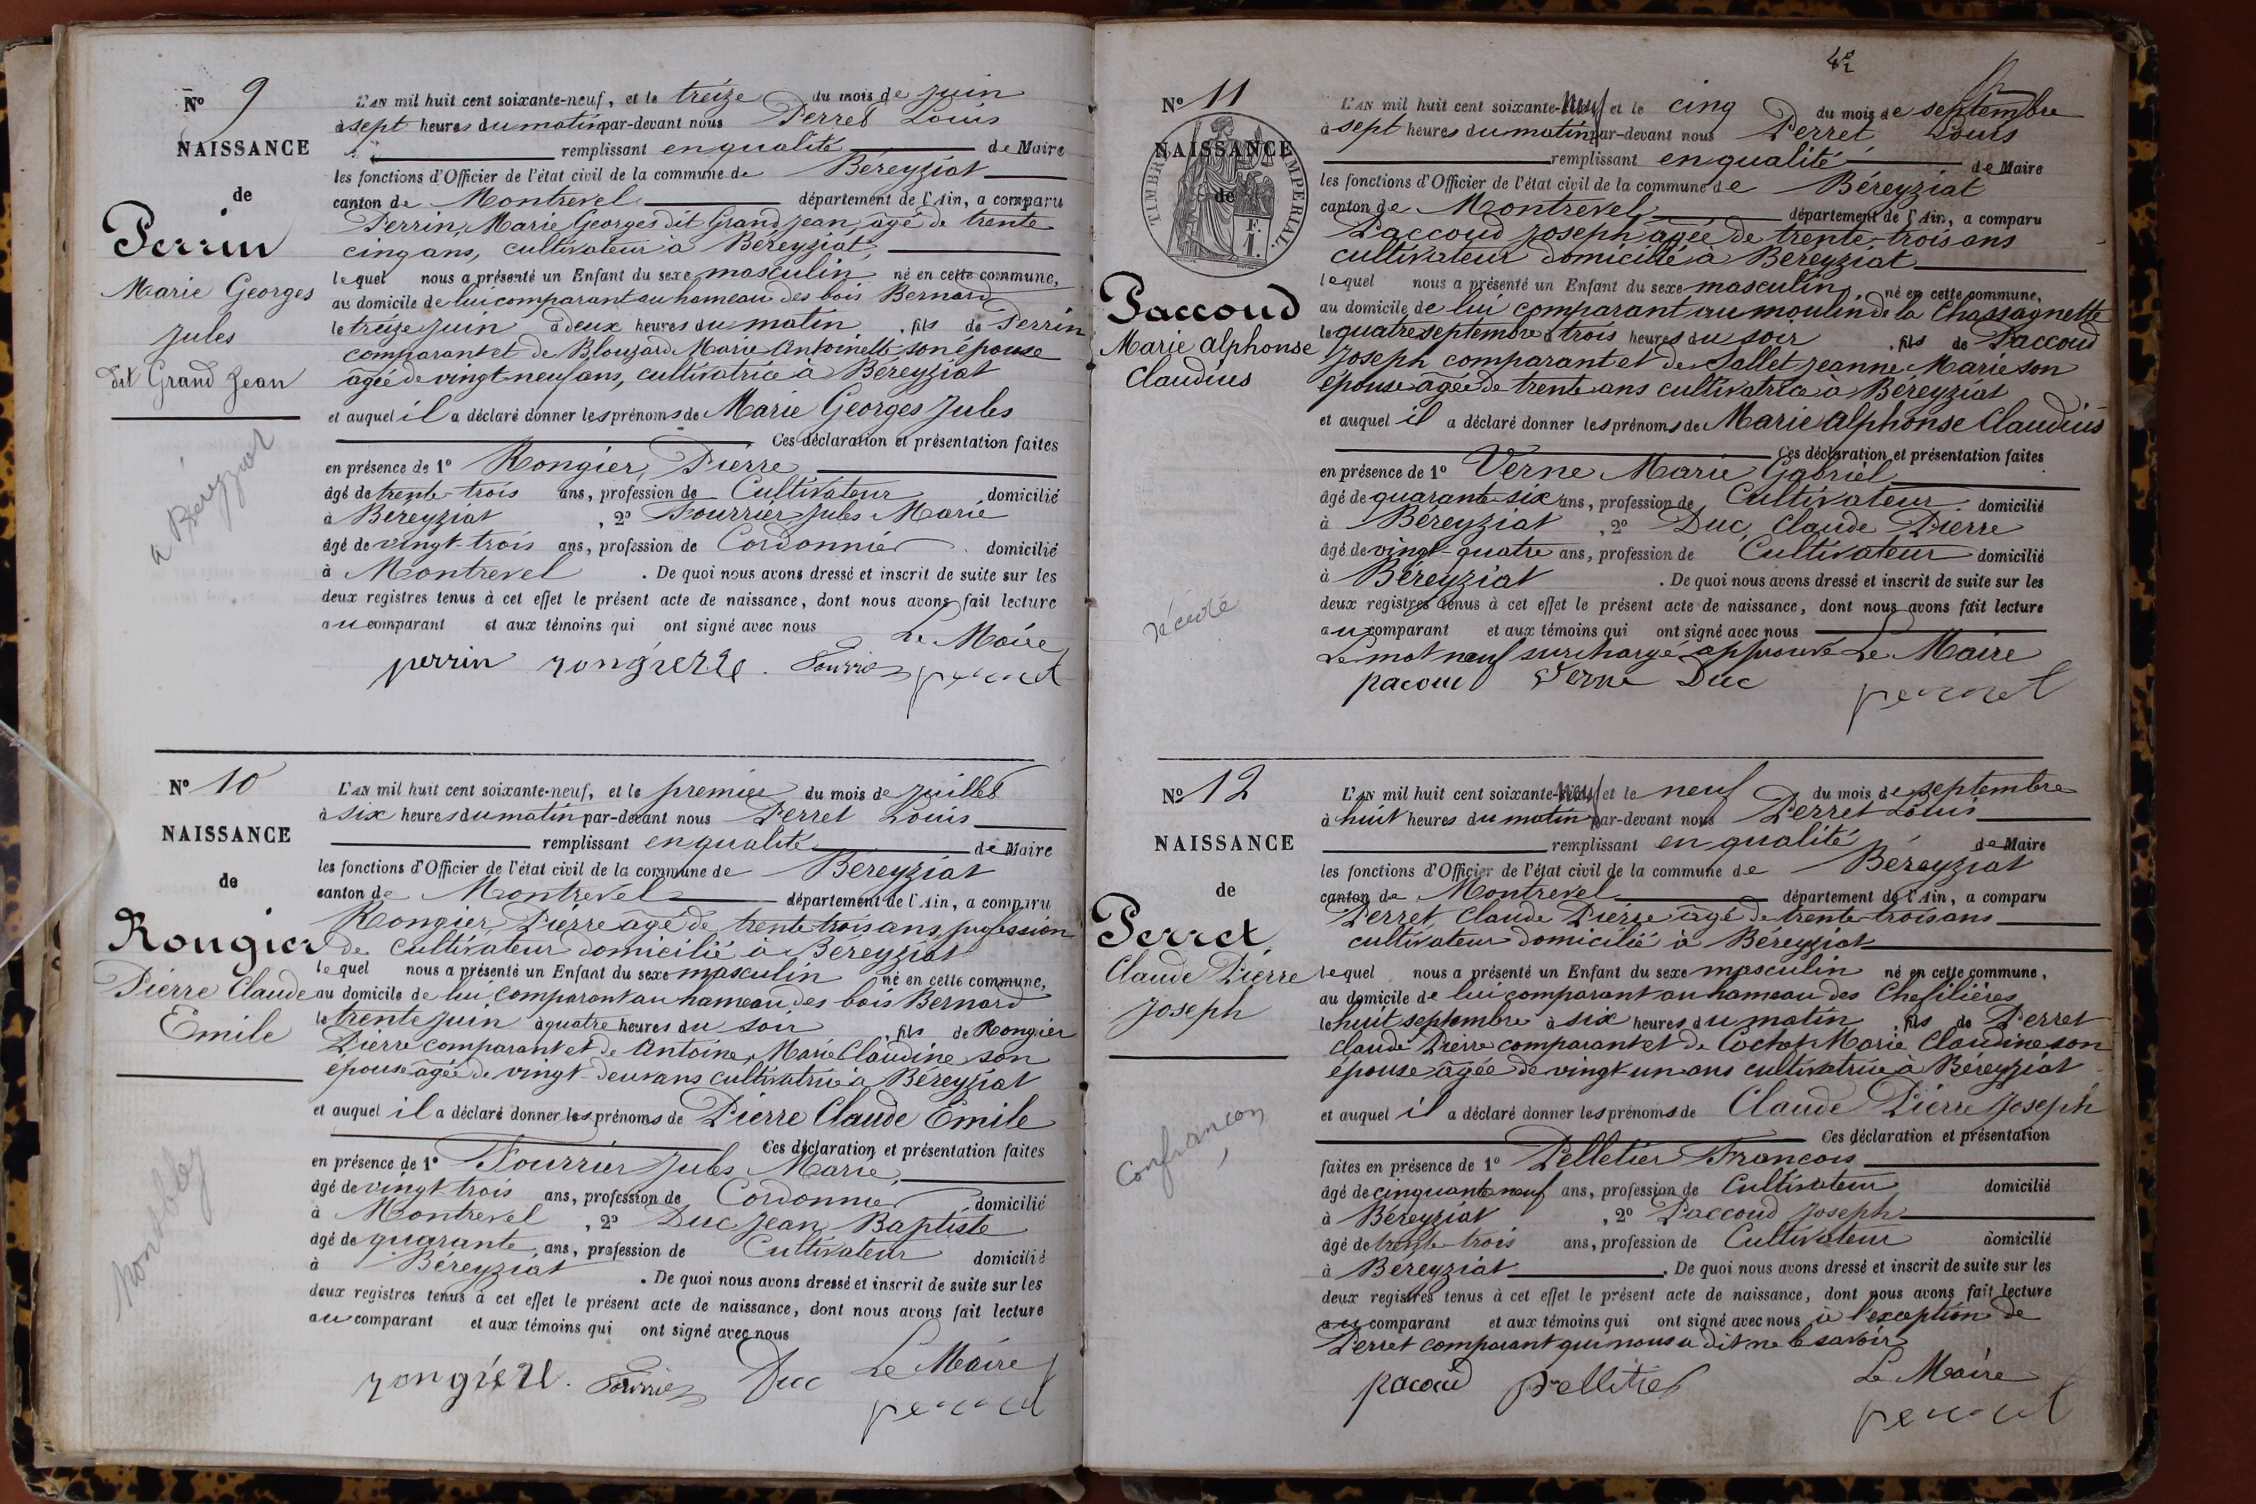 Nº 9
NAISSANCE
de
Perrin
Marie Georges
Jules
dit Grand Jean
a Béreyziat
L'AN mil huit cent soixante-neuf, et le treize du mois de juin
à sept heures du matin par-devant nous Perret Louis
remplissant en qualité de Maire
les fonctions d'Officier de l'état civil de la commune de Béreyziat
canton de Montrevel département de l'Ain, a comparu
Perrin, Marie Georges dit Grand Jean, âgé de trente
cinq ans, cultivateur à Béreyziat,
lequel nous a présenté un Enfant du sexe masculin né en cette commune,
au domicile de lui comparant au hameau des bois Bernard
le treize juin à deux heures du matin, fils de Perrin
comparant et de Blouzard Marie Antoinette son épouse
âgée de vingt neuf ans, cultivatrice à Béreyziat
et auquel il a déclaré donner les prénoms de Marie Georges Jules
Ces déclaration et présentation faites
en présence de 1º Rongier, Pierre
âgé de trente-trois ans, profession de Cultivateur domicilié
à Béreyziat, 2º Fourrier, Jules Marie
âgé de vingt-trois ans, profession de Cordonnier domicilié
à Montrevel. De quoi nous avons dressé et inscrit de suite sur les
deux registres tenus à cet effet le présent acte de naissance, dont nous avons fait lecture
au comparant et aux témoins qui ont signé avec nous
Le Maire
perrin rongierre. Fourrier perret
Nº 10
NAISSANCE
de
Rongier
Pierre Claude
Emile
L'AN mil huit cent soixante-neuf, et le premier du mois de juillet
à six heures du matin par-devant nous Perret Louis
remplissant en qualité de Maire
les fonctions d'Officier de l'état civil de la commune de Béreyziat
canton de Montrevel département de l'Ain, a comparu
Rongier, Pierre âgé de trente trois ans, profession
de cultivateur domicilié à Béreyziat
lequel nous a présenté un Enfant du sexe masculin né en cette commune,
au domicile de lui, comparant au hameau des bois Bernard
le trente juin à quatre heures du soir, fils de Rongier
Pierre comparant et de Antoine, Marie Claudine son
épouse âgée de vingt-deux ans cultivatrice à Béreyziat
et auquel il a déclaré donner les prénoms de Pierre Claude Emile
Ces déclaration et présentation faites
en présence de 1º Fourrier Jules Marie,
âgé de vingt trois ans, profession de Cordonnier domicilié
à Montrevel, 2º Duc Jean Baptiste
âgé de quarante ans, profession de Cultivateur domicilié
à Béreyziat. De quoi nous avons dressé et inscrit de suite sur les
deux registres tenus à cet effet le présent acte de naissance, dont nous avons fait lecture
au comparant et aux témoins qui ont signé avec nous
Le Maire
rongierre. Fourrier Duc perret
Nº 11
NAISSANCE
de
TIMBRE IMPERIAL.
1 F.
Paccoud
Marie Alphonse
Claudius
décédé
L'AN mil huit cent soixante-neuf et le cinq du mois de septembre
à sept heures du matin par-devant nous Perret, Louis
remplissant en qualité de Maire
les fonctions d'Officier de l'état civil de la commune de Béreyziat
canton de Montrevel département de l'Ain, a comparu
Paccoud Joseph âgée de trente-trois ans
cultivateur domicilié à Béreyziat
lequel nous a présenté un Enfant du sexe masculin, né en cette commune,
au domicile de lui comparant au moulin de la Chassagnette
le quatre septembre à trois heures du soir, fils de Paccoud
Joseph comparant et de Sallet Jeanne Marie son
épouse âgée de trente ans cultivatrice à Béreyziat
et auquel il a déclaré donner les prénoms de Marie Alphonse Claudius
Ces déclaration et présentation faites
en présence de 1º Verne Marie Gabriel
âgé de quarante six ans, profession de Cultivateur domicilié
à Béreyziat, 2º Duc, Claude Pierre
âgé de vingt-quatre ans, profession de Cultivateur domicilié
à Béreyziat. De quoi nous avons dressé et inscrit de suite sur les
deux registres tenus à cet effet le présent acte de naissance, dont nous avons fait lecture
au comparant et aux témoins qui ont signé avec nous
Le mot neuf surchargé approuvé Le Maire
pacoud Verne Duc perret
Nº 12
NAISSANCE
de
Perret
Claude Pierre
Joseph
Confrançon
L'AN mil huit cent soixante-neuf et le neuf du mois de septembre
à huit heures du matin par-devant nous Perret Louis
remplissant en qualité de Maire
les fonctions d'Officier de l'état civil de la commune de Béreyziat
canton de Montrevel département de l'Ain, a comparu
Perret Claude Pierre âgé de trente trois ans
cultivateur domicilié à Béreyziat
lequel nous a présenté un Enfant du sexe masculin né en cette commune,
au domicile de lui comparant au hameau des Chefilières
le huit septembre à six heures du matin, fils de Perret
Claude Pierre comparant et de Cochet Marie Claudine son
épouse âgée de vingt un ans cultivatrice à Béreyziat
et auquel il a déclaré donner les prénoms de Claude Pierre Joseph
Ces déclaration et présentation
faites en présence de 1º Pelletier Francois
âgé de cinquante neuf ans, profession de Cultivateur domicilié
à Béreyziat, 2º Paccoud Joseph
âgé de trente-trois ans, profession de Cultivateur domicilié
à Béreyziat. De quoi nous avons dressé et inscrit de suite sur les
deux registres tenus à cet effet le présent acte de naissance, dont nous avons fait lecture
au comparant et aux témoins qui ont signé avec nous à l'exception de
Perret comparant qui nous a dit ne le savoir
Le Maire
pacoud pelletier perret